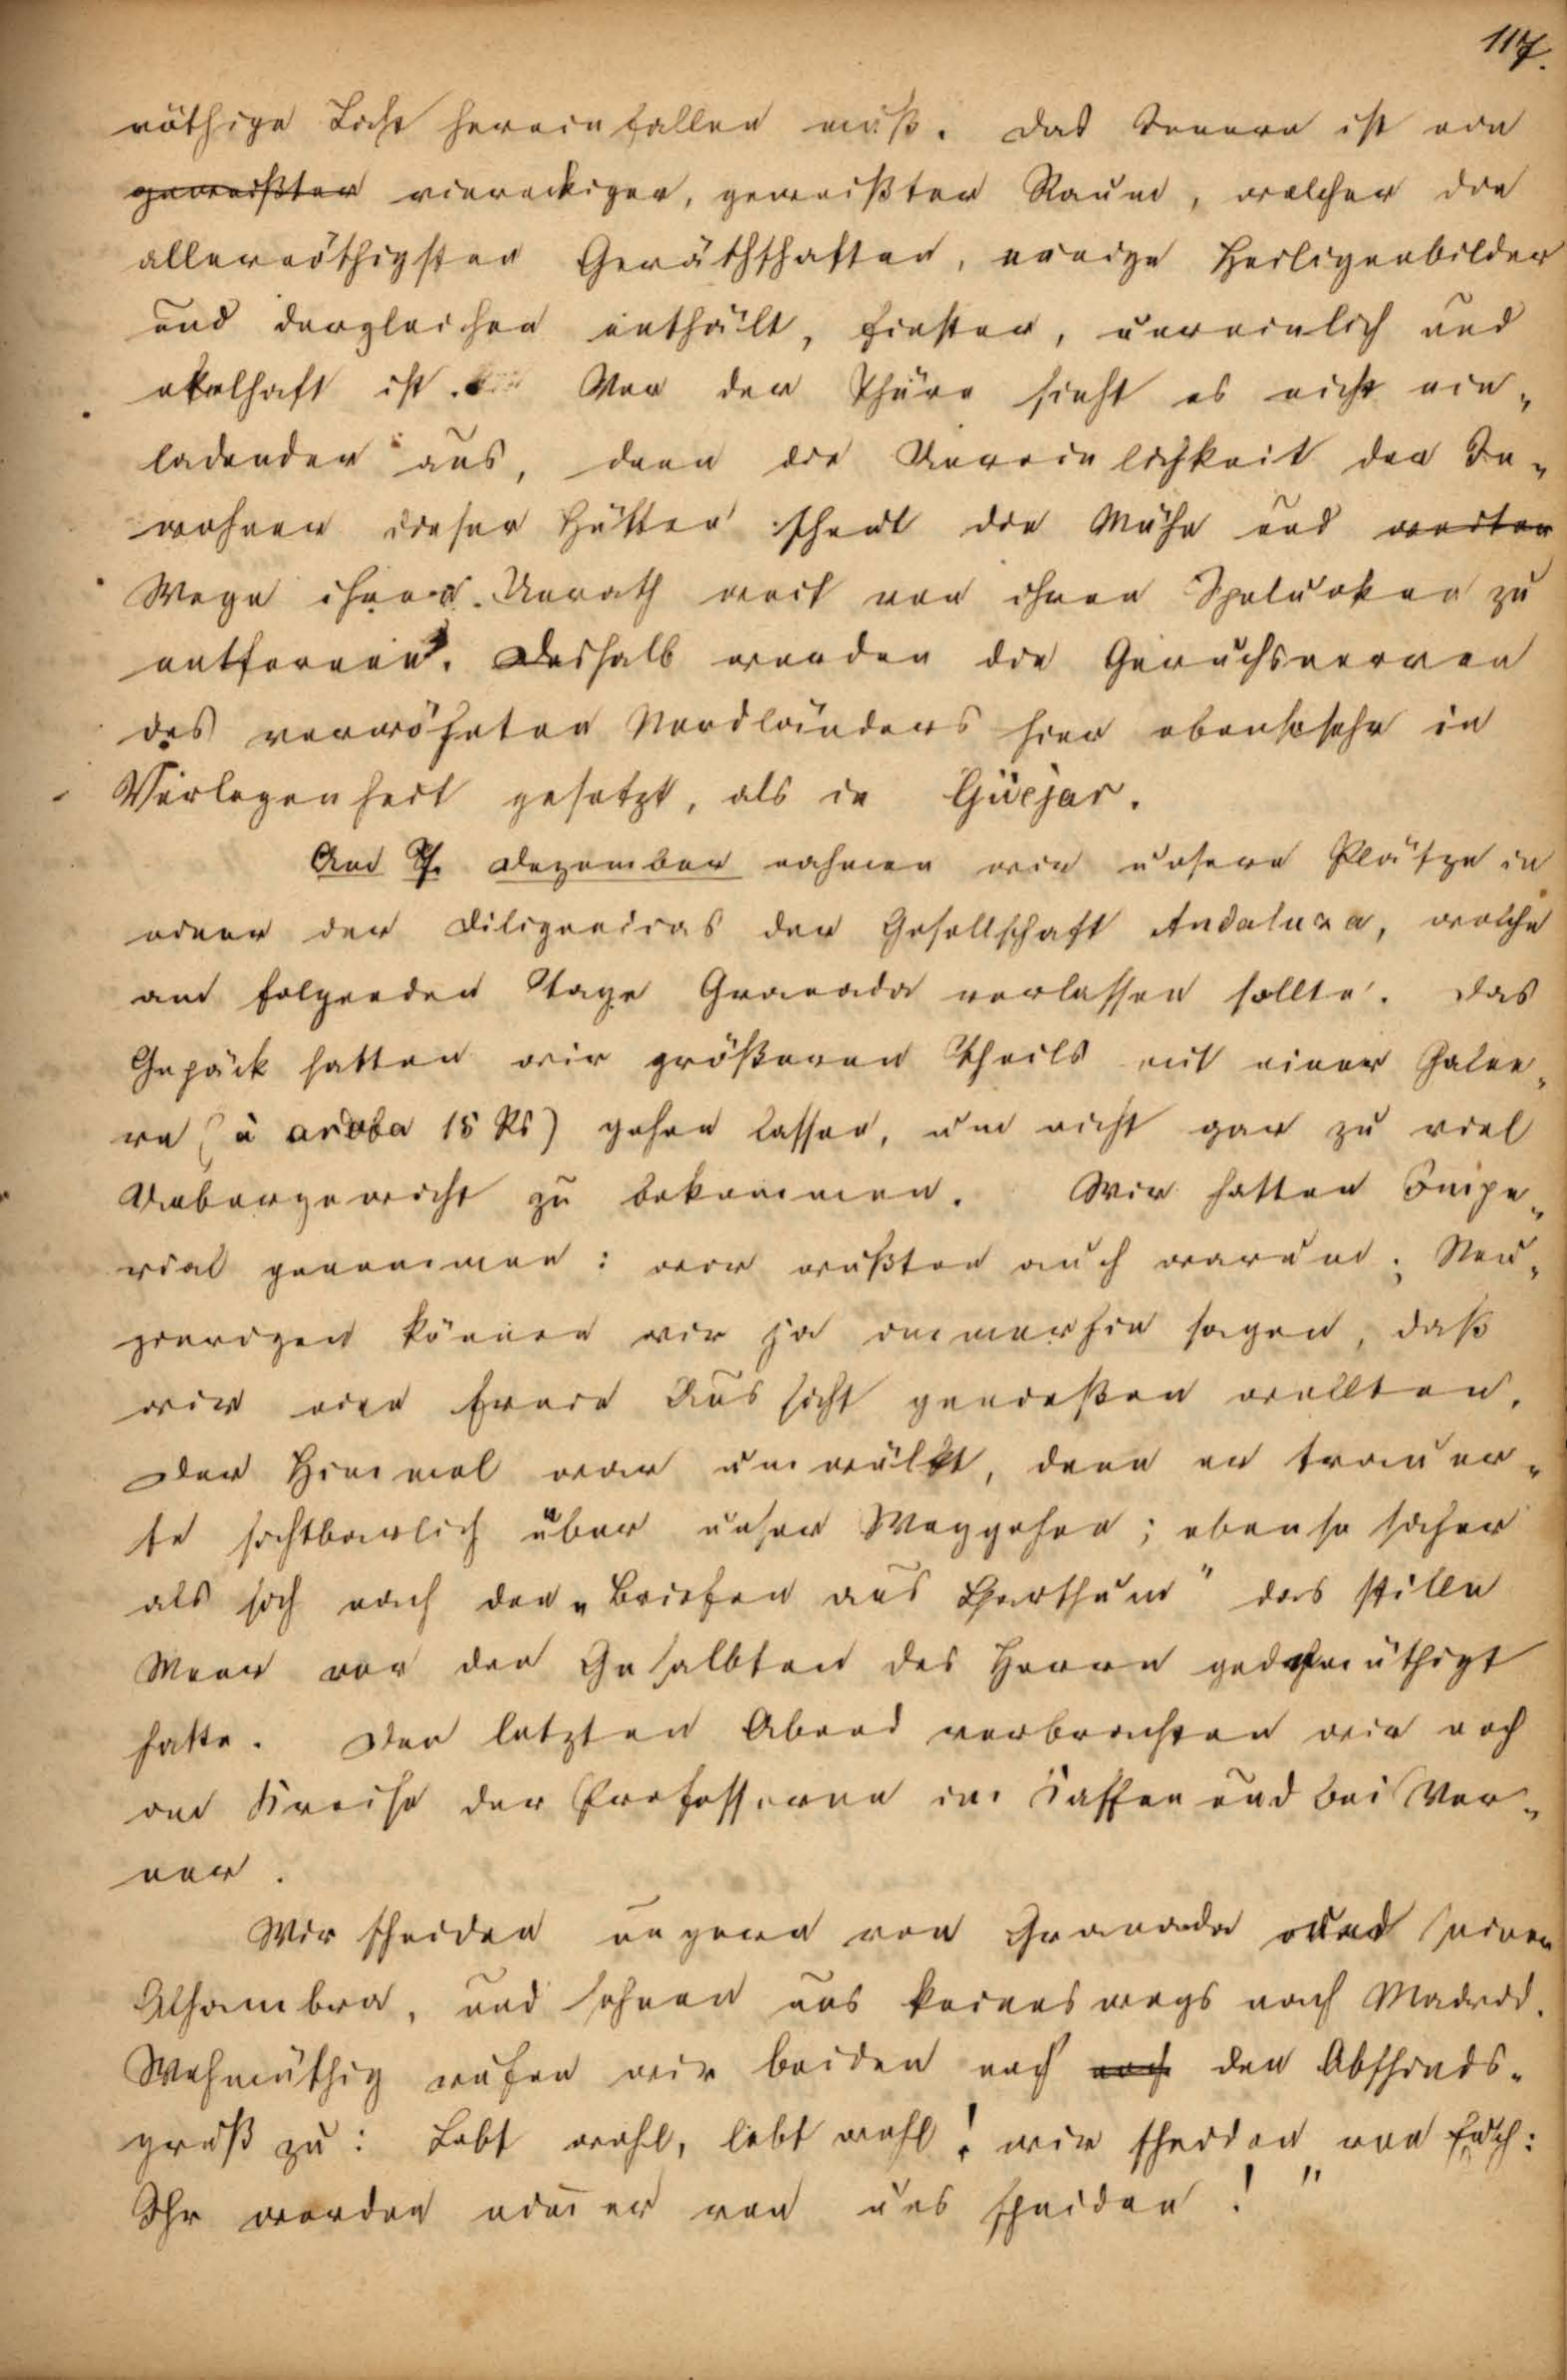 117.
nöthige Licht hereinfallen muß. Das Innere ist ein
geweißter viereckiger, geweißter Raum, welcher die
allernöthigsten Geräthschaften, einige Heiligenbilder
und dergleichen enthält, finster, unreinlich und
ekelhaft ist. Vor der Thüre sieht es nicht ein„
ladender aus, denn die Unreinlichkeit der In„
wohner dieser Hütten scheut die Mühe und weiter
Wege ihren Unrath weit von ihren Spelunken zu
entfernen. Deshalb werden die Geruchsnerven
des verwöhnten Nordländers hier ebensosehr in
Verlegenheit gesetzt, als in Güejar.
Am 7. Dezember nahmen wir unsere Plätze in
einer der Diligencias der Gesellschaft Andaluza, welche
am folgenden Tage Granada verlassen sollte. Das
Gepäck hatten wir größeren Theils mit einer Galee„
re (à aroba 15 Rs) gehen lassen, um nicht gar zu viel
Uebergewicht zu bekommen. Wir hatten Impe„
rial genommen: wir wußten auch warum; Neu„
gierigen können wir ja immerhin sagen, daß
wir eine freie Aussicht genießen wollten.
Der Himmel war umwölkt, denn er trauer„
te sichtbarlich über unser Weggehen; ebenso sicher
als sich nach den „Briefen aus Charthum" das stille
Meer vor den Gesalbten des Herrn gedemüthigt
hatte. Den letzten Abend verbrachten wir noch
im Kreise der Professoren im Kaffee und bei Wer„
ner.
Wir scheiden ungern von Granada und seiner
Alhambra, und sehnen uns keineswegs nach Madrid.
Wehmüthig rufen wir beiden noch noch den Abschieds„
gruß zu: Lebt wohl, lebt wohl! wir scheiden von Euch:
Ihr werdet nimer von uns scheiden!"